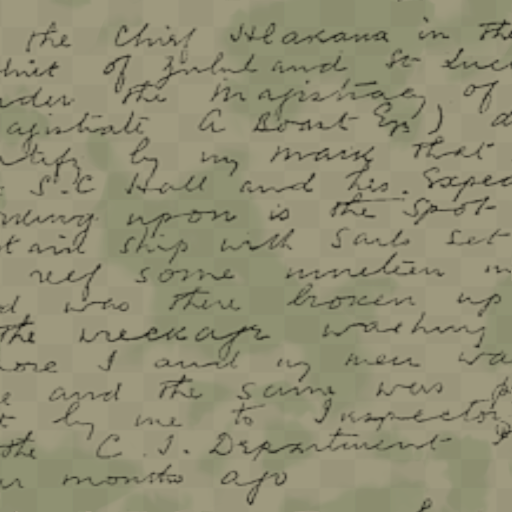 the Chief Hlakana in the
of Zululand St Luci
under the Magistracy of
Magistrate A Boast Esq)
certify by my mark that
S.C Hall and his Exped
working upon is the spot
ship with sails set
reef some nineteen
was there broken up
the wreckage washing
I and my men
and the same was
by me to Inspector
the C.I. Department
months ago